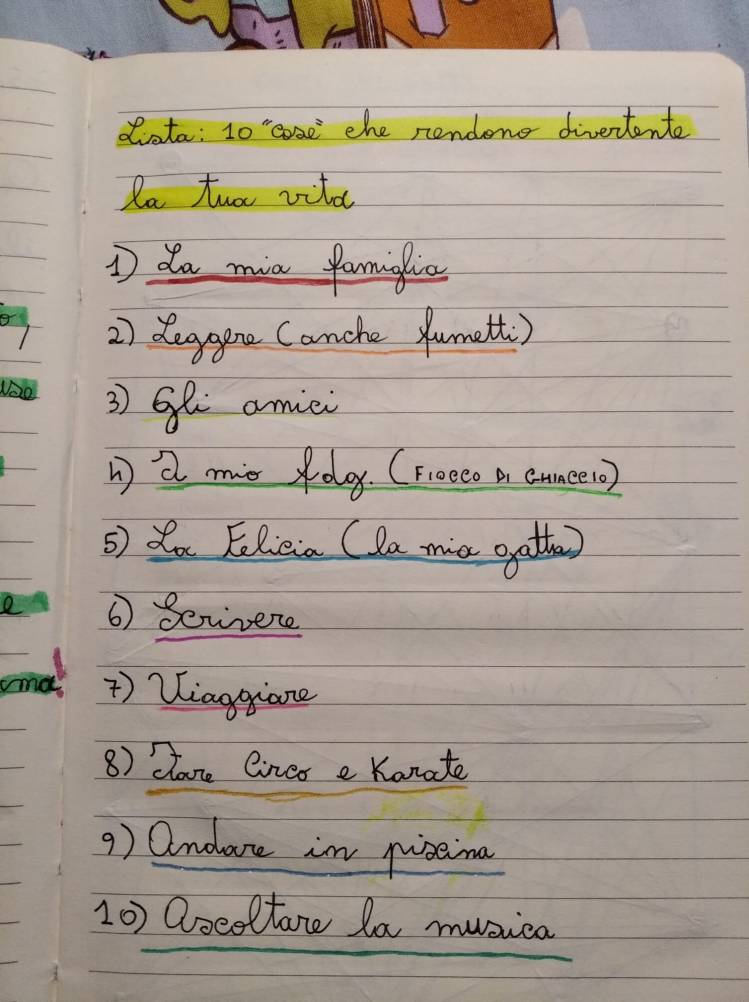 Lista: 10 "cose" che rendono divertente
la tua vita
1) La mia famiglia
2) Leggere (anche fumetti)
3) Gli amici
4) Il mio fdg. (FIOCCO DI GHIACCIO)
5) La Felicia (la mia gatta)
6) Scrivere
7) Viaggiare
8) Fare Circo e Karate
9) Andare in piscina
10) Ascoltare la musica